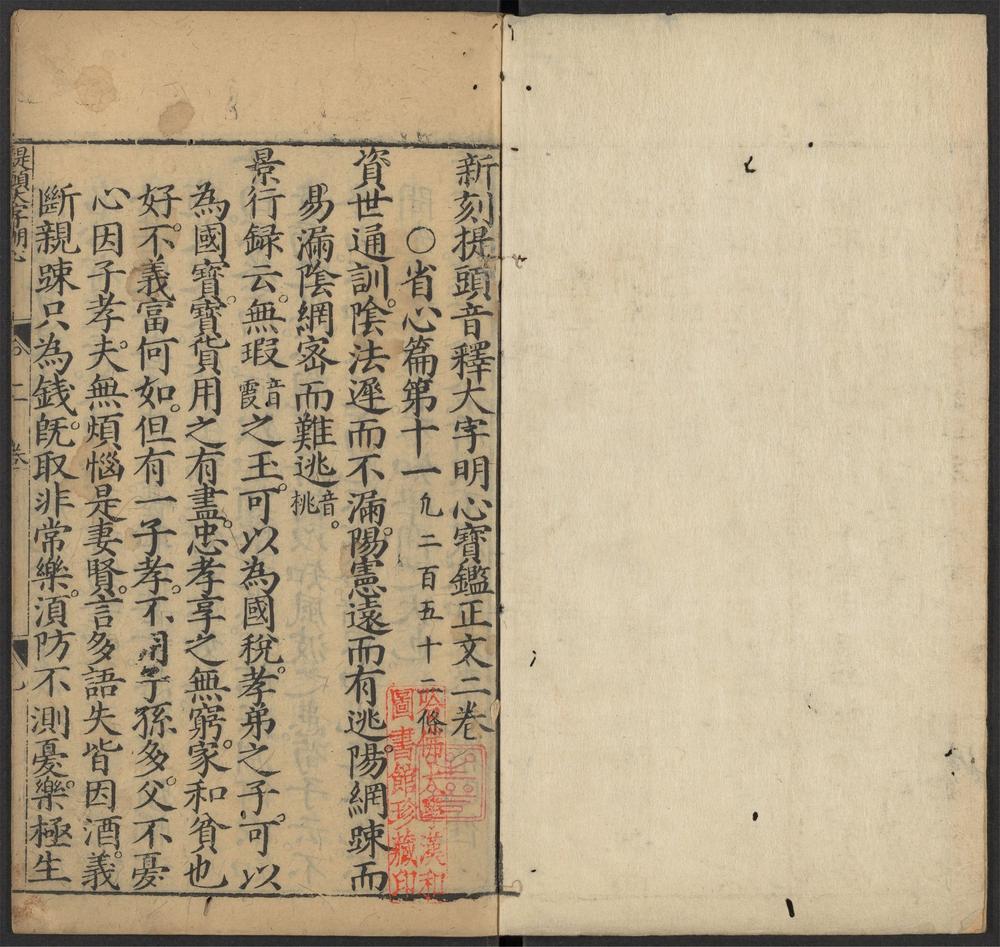 新刻提頭音釋大字明心寶鑑正文二卷
○省心篇第十一 凢二百五十二條
資世通訓。陰法遲而不漏。陽憲遠而有逃。陽網踈而
易漏。陰網宻而難逃音桃。
景行録云。無瑕音霞之玉。可以為國稅。孝弟之子。可以
為國寶。寶貨用之有盡。忠孝享之無窮。家和貧也
好。不義富何如。但有一子孝。不用子孫多。父不憂
心因子孝。夫無煩惱是妻賢。言多語失皆因酒。義
斷親踈只為錢。旣取非常樂。湏防不測憂。樂極生
提頭大字明心
二卷
哈佛大學漢和
圖書館珍藏印